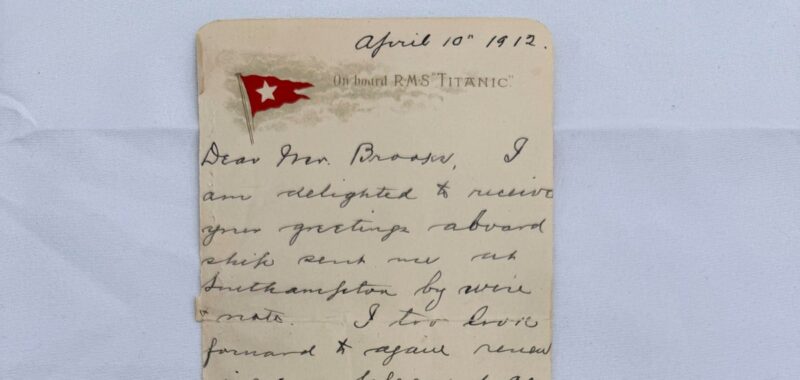 April 10" 1912.
On board RMS "TITANIC."
Dear Mr. Brooks, I
am delighted to receive
your greetings aboard
ship sent me at
Southampton by wire
& note. I too look
forward to again renew